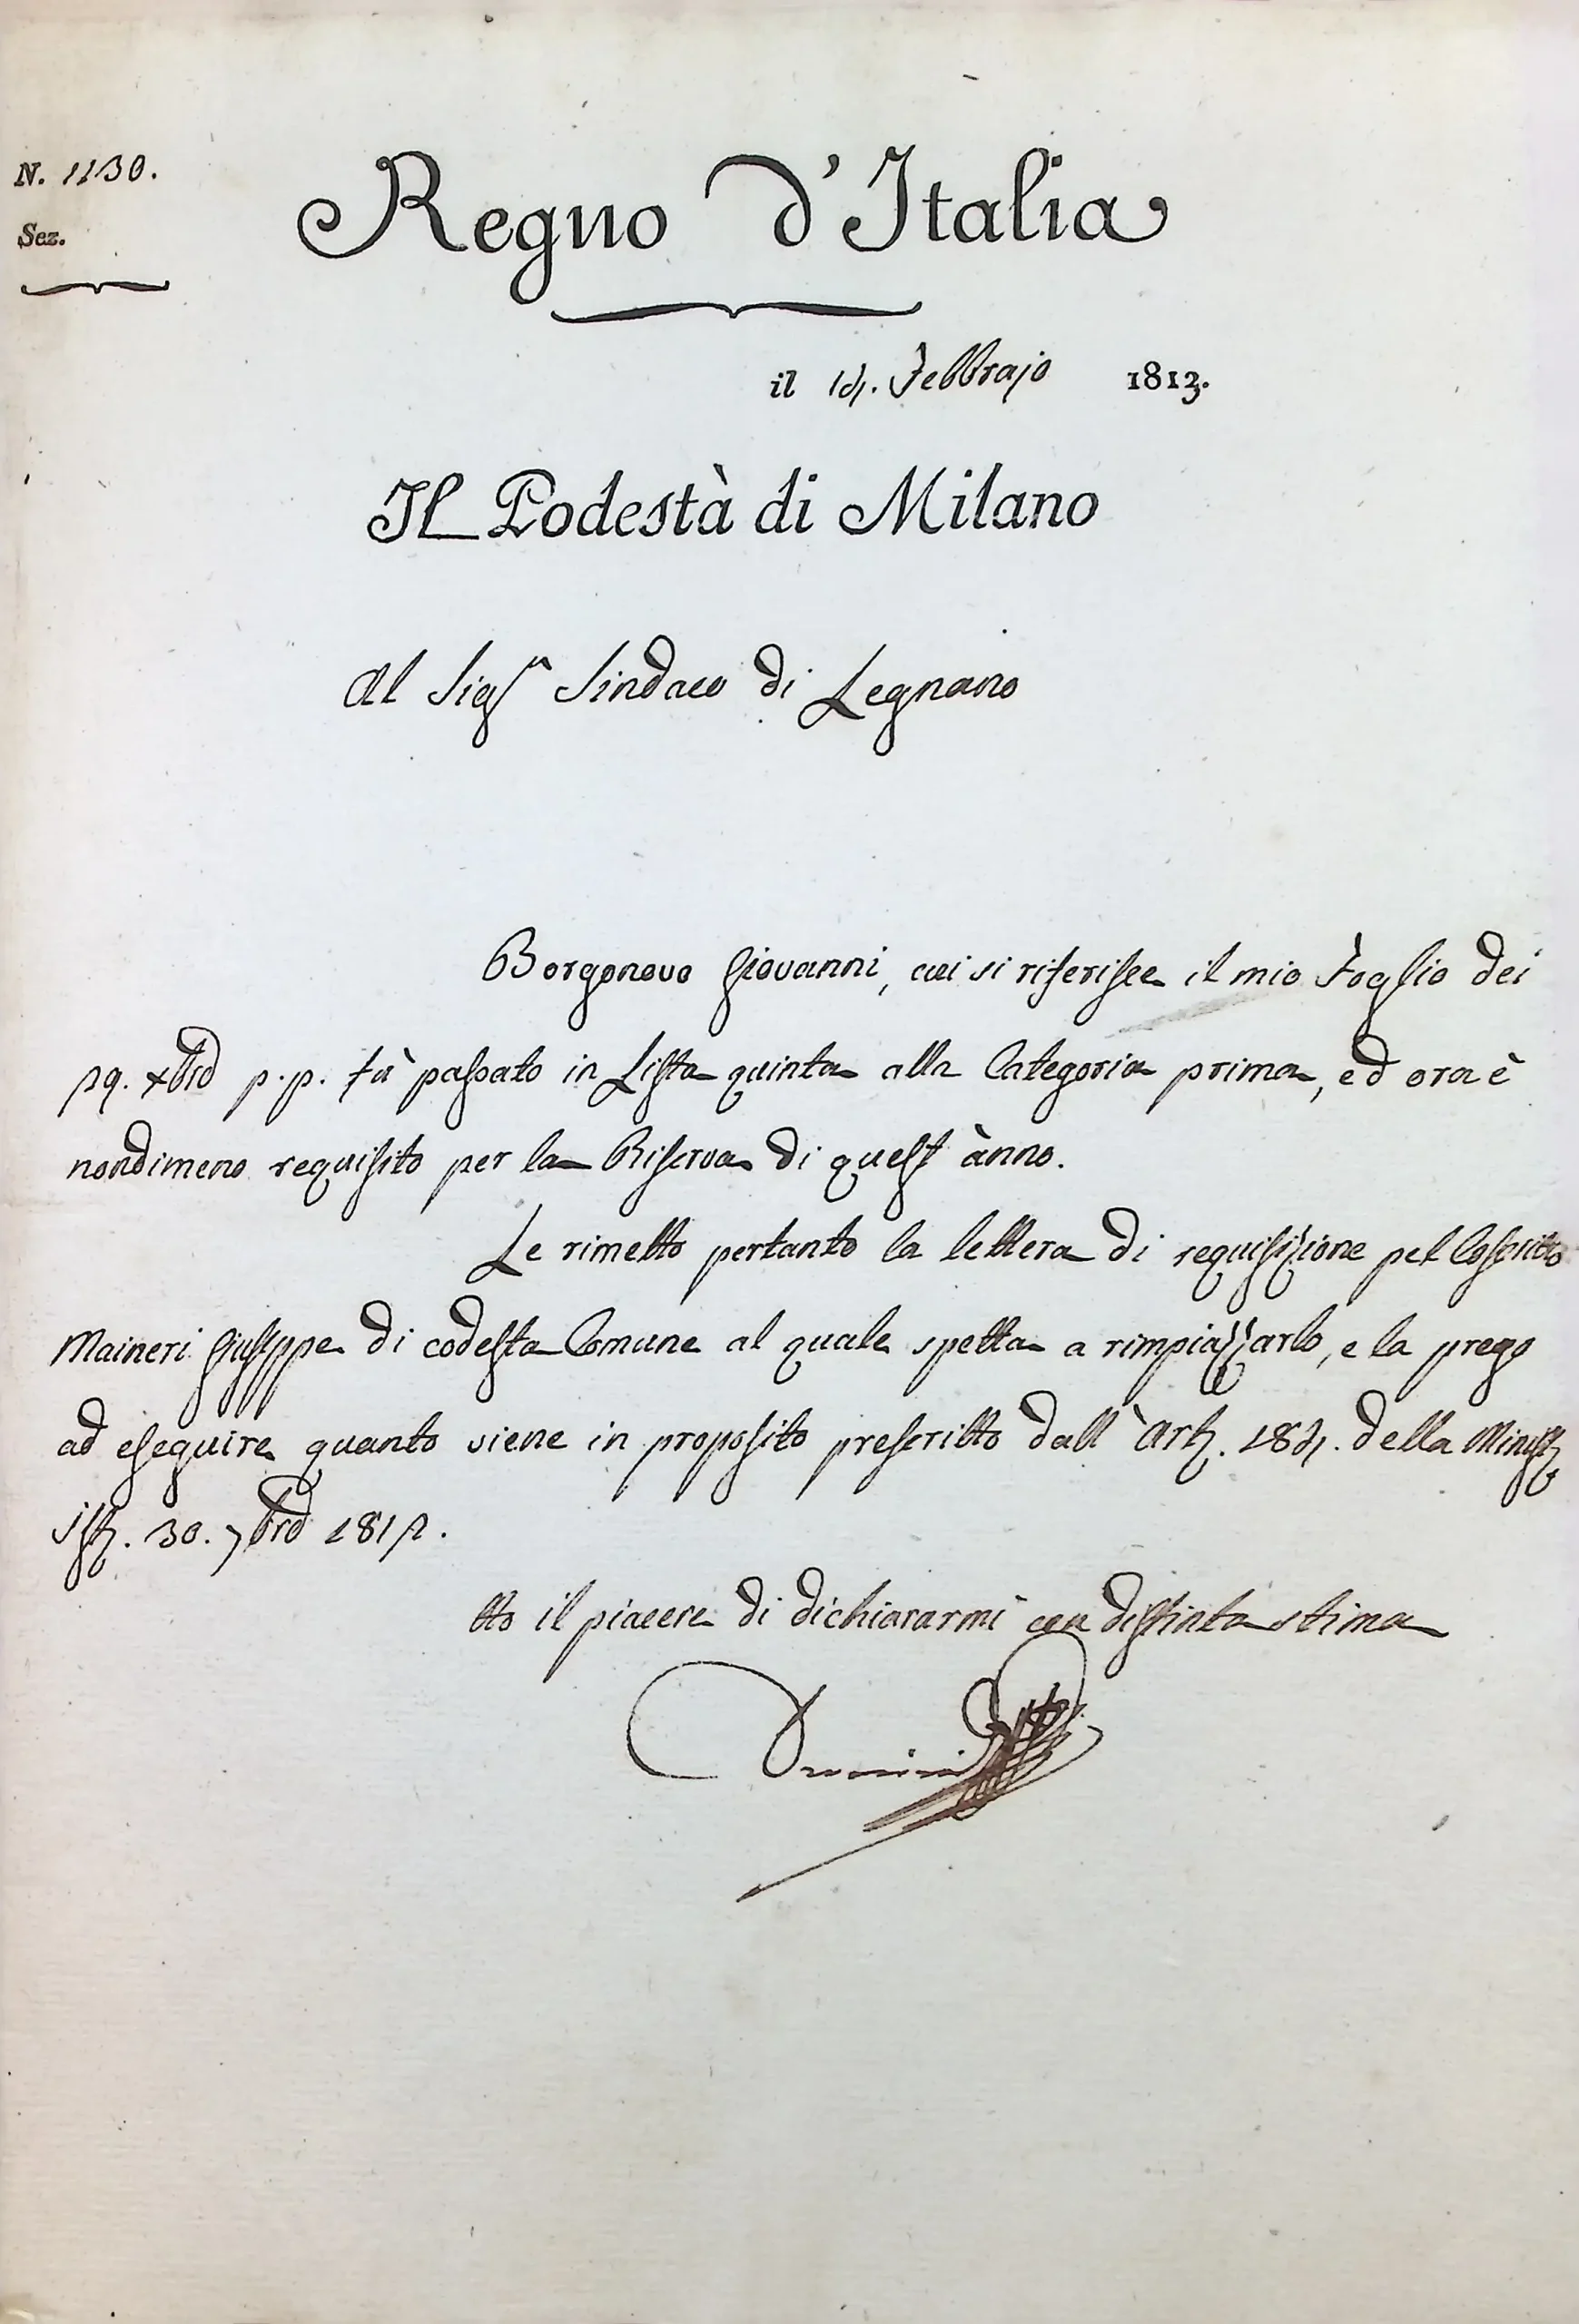 N. 1130.
Sez.
Regno d'Italia
il 14. Febbrajo 1813.
Il Podestà di Milano
Al Sigr Sindaco di Legnano
Borgonovo Giovanni, cui si riferisce il mio Foglio dei
29. xbre p.p. fù passato in Lista quinta alla Categoria prima, ed ora è
nondimeno requisito per la Riserva di quest'ànno.
Le rimetto pertanto la lettera di requisizione pel Coscritto
Maineri Giuseppe di codesta Comune al quale spetta a rimpiazzarlo, e la prego
ad eseguire quanto viene in proposito prescritto dall'Art. 184. della Minist.
Ist. 30. 7bre 1812.
Ho il piacere di dichiararmi con distinta stima